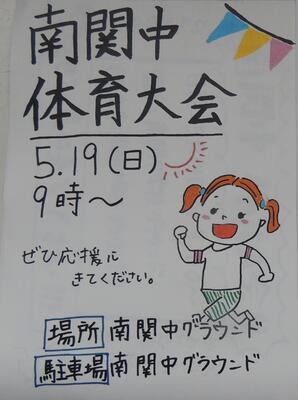 南関中
体育大会
5.19(日)
9時～
ぜひ応援に
きてください。
場所 南関中グラウンド
駐車場 南関中グラウンド